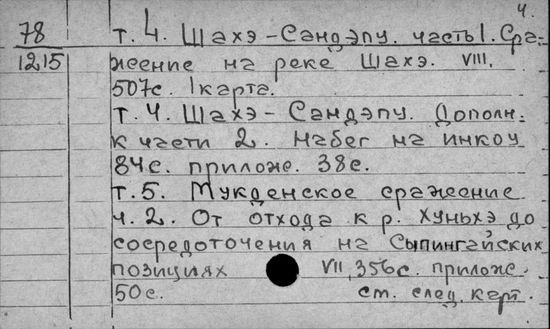 4.
78 т. 4. Шахэ-Сандэпу. часть 1. Сра-
1215 жение на реке Шахэ. VIII,
507с. 1 карта.
т. 4. Шахэ - Сандэпу. Дополн.
к части 2. Набег на инкоу
84с. прилож. 38с.
т. 5. Мукденское сражение
ч. 2. От отхода к р. Хуньхэ до
сосредоточения на Сыпингайских
позициях VII, 356с. прилож.
50с. см. след. карт.